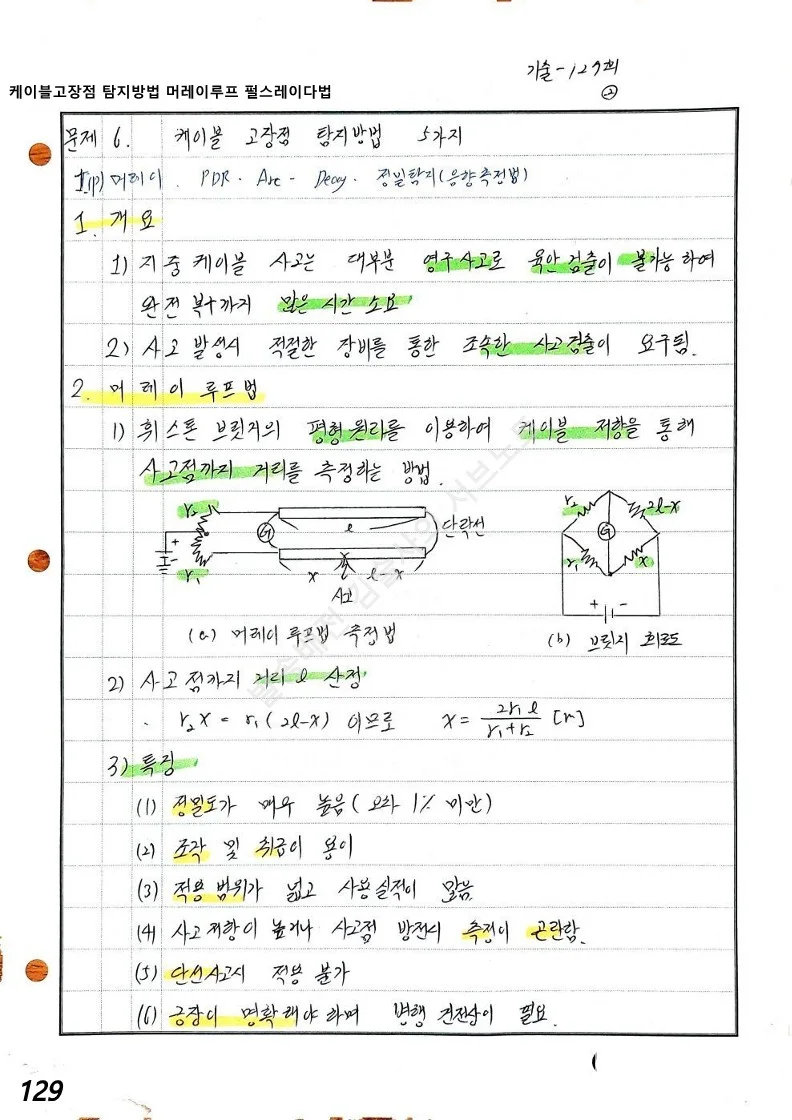 기술-129회
②
케이블고장점 탐지방법 머레이루프 펄스레이다법
문제 6. 케이블 고장점 탐지방법 5가지
Tip) 머레이. PDR. Arc - Decay. 정밀탐지(음향측정법)
1. 개요
1) 지중케이블 사고는 대부분 영구사고로 육안검출이 불가능하여
완전 복구까지 많은 시간 소요
2) 사고 발생시 적절한 장비를 통한 조속한 사고검출이 요구됨.
2. 머레이 루프법
1) 휘스톤 브릿지의 평형원리를 이용하여 케이블 저항을 통해
사고점까지 거리를 측정하는 방법.
r₂ G ℓ 단락선
+ -
r₁ x ℓ-x
사고
(a) 머레이루프법 측정법
r₂ 2ℓ-x
G
r₁ x
+ -
(b) 브릿지 회로도
2) 사고점까지 거리 ℓ 산정
. r₂x = r₁(2ℓ-x) 이므로 x = 2r₁ℓ / r₁+r₂ [m]
3) 특징
(1) 정밀도가 매우 높음(오차 1% 미만)
(2) 조작 및 취급이 용이
(3) 적용범위가 넓고 사용실적이 많음
(4) 사고저항이 높거나 사고점 방전시 측정이 곤란함.
(5) 단선사고시 적용 불가
(6) 긍장이 명확해야 하며 병행 건전상이 필요.
129